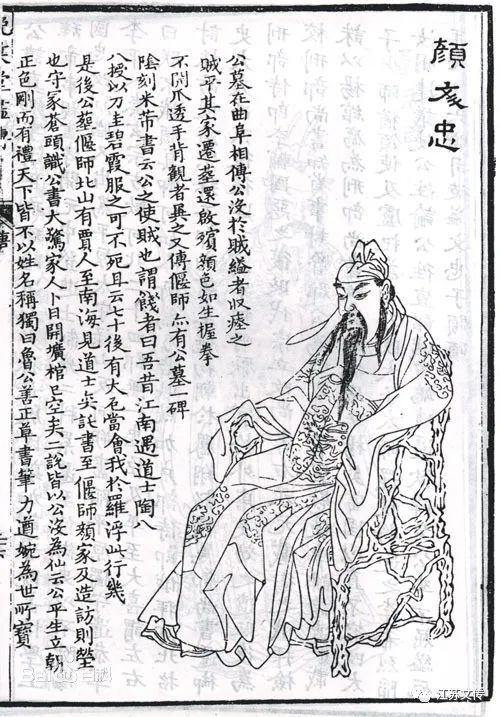 顏文忠
公墓在曲阜相傳公沒於賊縊者收瘞之
賊平其家遷塟還啟殯顏色如生握拳
不開爪透手背觀者異之又傳偃師亦有公墓一碑
陰刻米芾書云公之使賊也謂餞者曰吾昔江南遇道士陶八
八授以刀圭碧霞服之可不死且云七十後有大厄當會我於羅浮此行幾
是後公塟偃師北山有賈人至南海見道士奕託書至偃師顏家及造訪則塋
也守冢蒼頭識公書大驚家人卜日開壙棺已空矣二說皆以公沒為仙云公平生立朝
正色剛而有禮天下皆不以姓名稱獨曰魯公善正草書筆力遒婉為世所寶
唐
Baidu百科
江苏文传